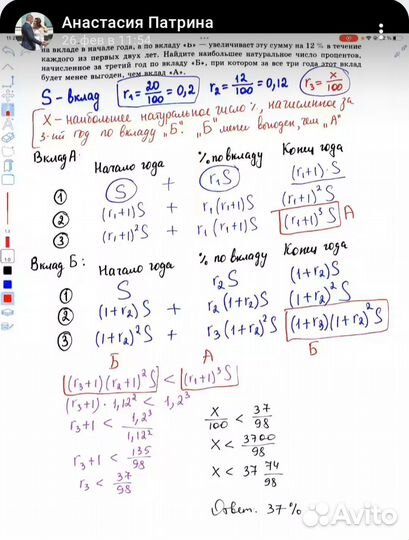 Анастасия Патрина
26 фев в 11:54
на вкладе в начале года, а по вкладу «Б» — увеличивает эту сумму на 12 % в течение
каждого из первых двух лет. Найдите наибольшее натуральное число процентов,
начисленное за третий год по вкладу «Б», при котором за все три года этот вклад
будет менее выгоден, чем вклад «А».
S - вклад r₁ = 20/100 = 0,2 r₂ = 12/100 = 0,12 r₃ = x/100
X - наибольшее натуральное число %, начисленное за
3-ий год по вкладу "Б". "Б" менее выгоден, чем "А"
Вклад А: Начало года % по вкладу Конец года
① S + r₁S (r₁+1)·S
② (r₁+1)S + r₁(r₁+1)S (r₁+1)²S
③ (r₁+1)²S + r₁(r₁+1)²S (r₁+1)³S А
Вклад Б: Начало года % по вкладу Конец года
① S r₂S (1+r₂)S
② (1+r₂)S + r₂(1+r₂)S (1+r₂)²S
③ (1+r₂)²S + r₃(1+r₂)²S (1+r₃)(1+r₂)²S
Б А Б
(r₃+1)(r₂+1)²S < (r₁+1)³S
(r₃+1)·1,12² < 1,2³
r₃+1 < 1,2³/1,12²
r₃+1 < 135/98
r₃ < 37/98
x/100 < 37/98
x < 3700/98
x < 37 74/98
Ответ. 37 %
Avito